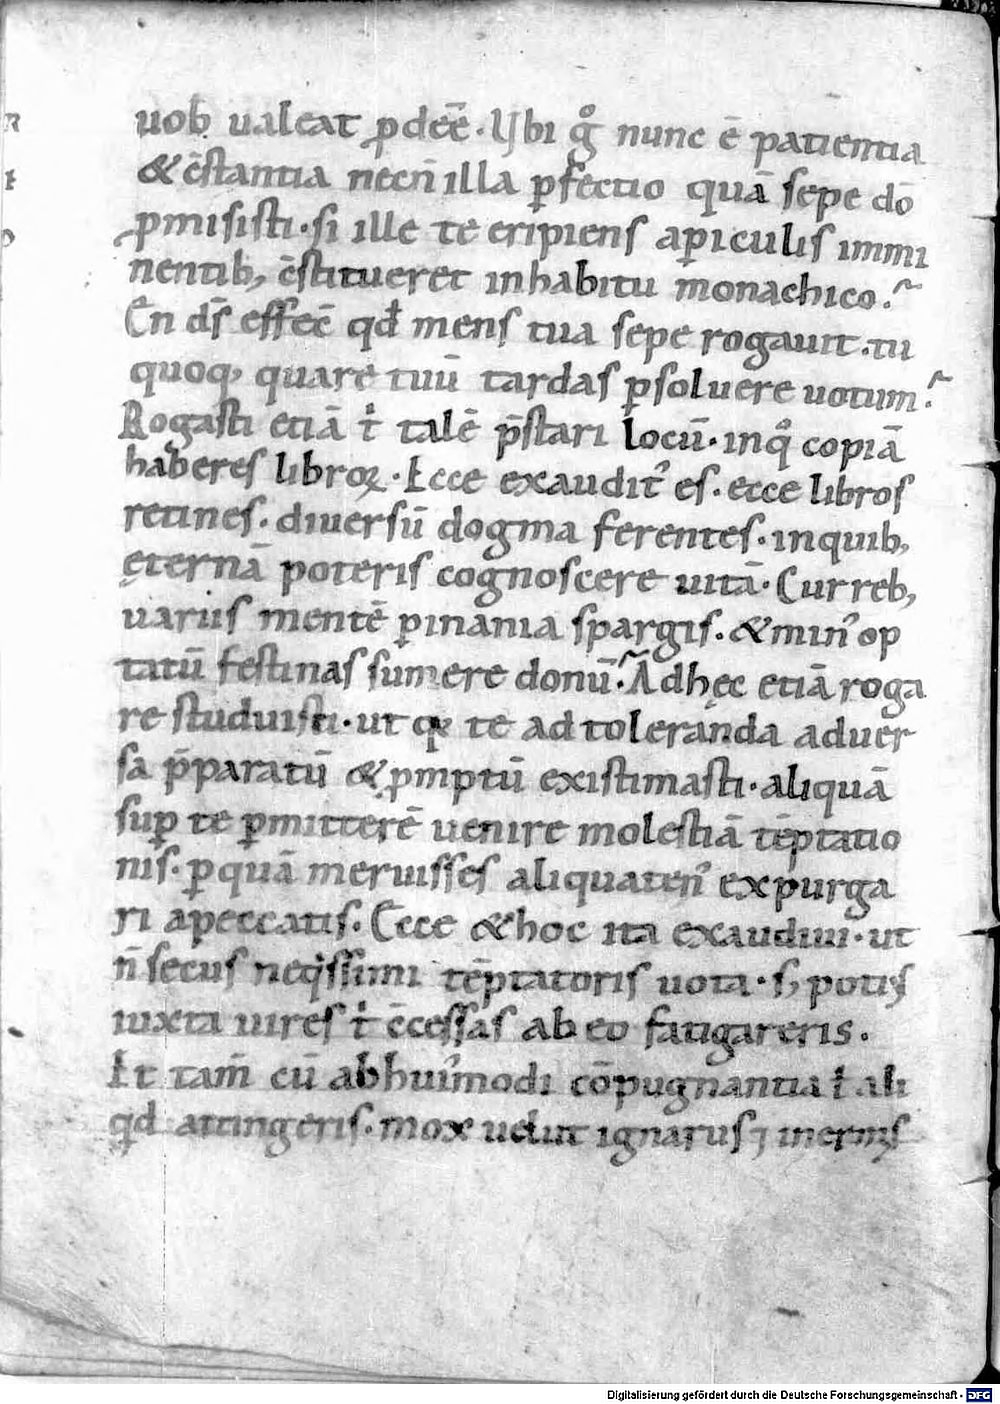 uob ualeat ꝓdeē. Ubi gͦ nunc ē patientia
& ēstantia necn̄ illa ꝑfectio quā sepe dō
ꝓmisisti. si ille te eripiens apiculis immi
nentib, ēstitueret inhabitu monachico.
En ds̄ effec̄ qd̄ mens tua sepe rogauit. tu
quoq, quare tuū tardas ꝑsoluere uotum.
Rogasti etiā t talē p̄stari locū. inqͦ copiā
haberes libroꝝ. Ecce exaudit᾽ es. ecce libros
retines. diuersū dogma ferentes. inquib,
ęternā poteris cognoscere uitā. Cur reb,
uariis mentē ꝑinania spargis. & min᾽ op
tatū festinas sumere donū. Adhęc etiā roga
re studuisti. ut te ad toleranda aduer
sa p̄paratū & ꝓmptū existimasti. aliquā
suꝑ te ꝑmitterē uenire molestiā tēptatio
nis. ꝑquā meruisses aliquaten᾽ expurga
ri apeccatis. Ecce & hoc ita exaudiui. ut
n̄ secus neqissimi tēptatoris uota. s; potiꝰ
iuxta uires t ēcessas ab eo fatigareris.
Et tam̄ cū abhui᾽modi cōpugnantia t ali
qd attingeris. mox uelut ignarus ⁊ inermis
Digitalisierung gefördert durch die Deutsche Forschungsgemeinschaft - DFG